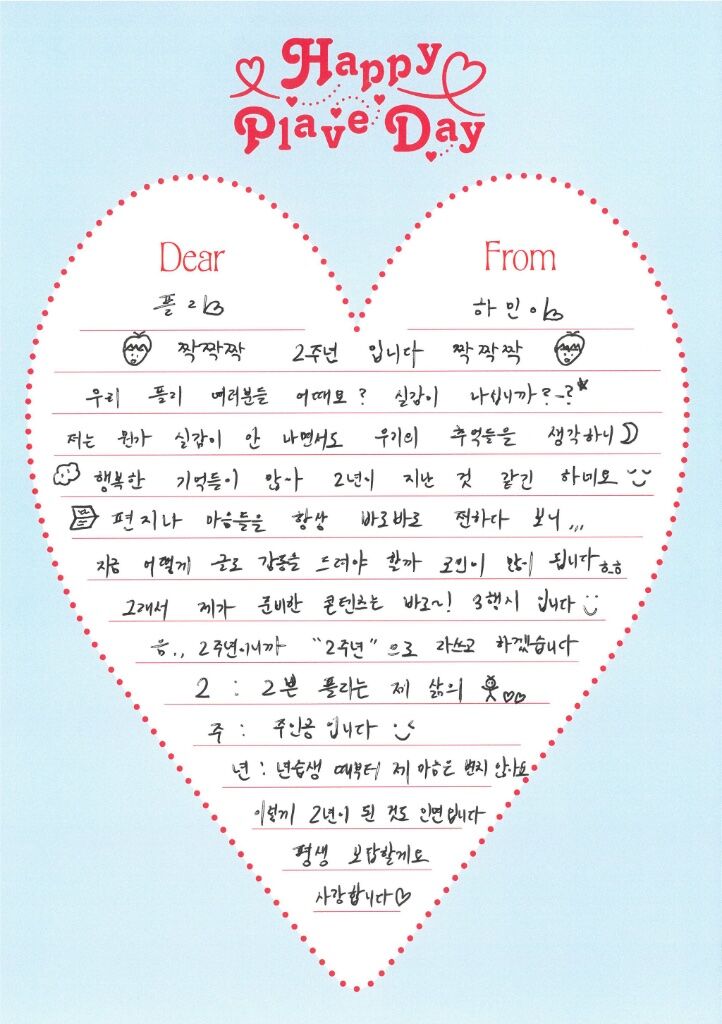 Happy
Plave Day
Dear From
플리 하민이
짝짝짝 2주년 입니다 짝짝짝
우리 플리 여러분들 어때요? 실감이 나십니까?-?
저는 뭔가 실감이 안 나면서도 우리의 추억들을 생각하니
행복한 기억들이 많아 2년이 지난 것 같긴 하네요
편지나 마음들을 항상 바로바로 전하다 보니,,,
지금 어떻게 글로 감동을 드려야 할까 고민이 많이 됩니다ㅎ_ㅎ
그래서 제가 준비한 콘텐츠는 바로~! 3행시 입니다
음.., 2주년이니까 "2주년"으로 라쓰고 하겠습니다
2 : 2쁜 플리는 제 삶의
주 : 주인공 입니다
년 : 년습생 때부터 제 마음은 변치 않아요
이렇게 2년이 된 것도 인연입니다
평생 보답할게요
사랑합니다♡